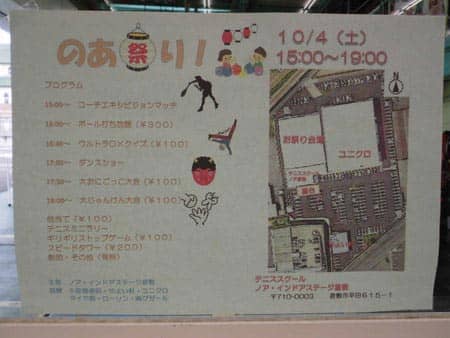 のあ祭り！
10/4（土）
15:00～19:00
プログラム
15:00～ コーチエキシビションマッチ
16:00～ ボール打ち放題（￥300）
16:00～ ウルトラ○×クイズ（￥100）
17:00～ ダンスショー
17:30～ 大おにごっこ大会（￥100）
18:00～ 大じゃんけん大会（￥100）
的当て（￥100）
テニスミニラリー
ギリギリストップゲーム（￥100）
スピードタワー（￥200）
その他（有料）
主催 ノア・インドアステージ倉敷
タイヤ館・ローソン・
お祭り会場
ユニクロ
屋台
テニススクール
ノア・インドアステージ倉敷
〒710-0003 倉敷市平田615-1